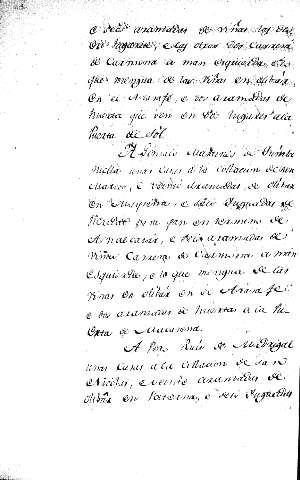 e seis aranzadas de viñas, los dos
en e las otras dos Carrera
de Carmona a man esquierda, e lo
que mengua de las viñas en olibar
en el Axarafe, e dos aranzadas de
huerta que son en dos lugares a la
Puerta de Sol
A Gonzalo Martinez de
unas casas a la collacion de San
Marcos, e veinte aranzadas de olibar
en e seis yugadas de
heredat para pan en termino de
e seis aranzadas de
viñas Carrera de Carmona a man
esquierda, e lo que mengua de las
viñas en olibar en el Axarafe
e dos aranzadas de huertas a la Pu
erta de Macarena.
A Per Ruiz de Madrigal
unas casas a la collacion de San
Nicolas, e veinte aranzadas de
olibar en e seis yugadas